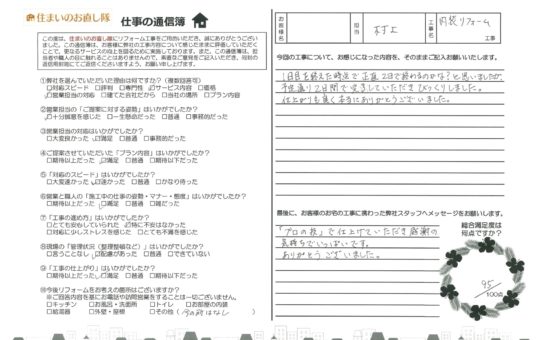 住まいのお直し隊 仕事の通信簿
この度は、住まいのお直し隊にリフォーム工事をご用命いただき、誠にありがとうござい
ました。この通信簿は、お客様に弊社の工事内容について感じたままに評価していただく
ことで、更なるサービスの向上を図るために実施しております。また、この通信簿は、担
①弊社を選んでいただいた理由は何ですか?（複数回答可）
□対応スピード □評判 □専門性 □サービス内容 □価格
□営業担当の対応 □建てた会社だから □当社の場所 □プラン内容
②営業担当の「ご提案に対する姿勢」はいかがでしたか？
□十分誠意を感じた □一生懸命だった □普通 □事務的だった
③営業担当の対応はいかがでしたか？
□大変良かった □満足 □普通 □事務的だった
④ご提案させていただいた「プラン内容」はいかがでしたか？
□期待以上だった □満足 □普通 □期待以下だった
⑤「対応のスピード」はいかがでしたか？
□大変速かった □速かった □普通 □かなり待った
⑥営業と職人の「施工中の仕事の姿勢・マナー・態度」はいかがでしたか？
□期待以上だった □満足 □普通 □期待以下だった
⑦「工事の進め方」はいかがでしたか？
□とても安心していられた □特に不安はなかった
□対応に少しストレスを感じた □とても不満を感じた
⑧現場の「管理状況（整理整頓など）」はいかがでしたか？
□言うことなし □配慮があった □普通 □できていない
⑨「工事の仕上がり」はいかがでしたか？
□期待以上だった □満足 □普通 □期待以下だった
⑩今後リフォームをお考えの箇所はございますか？
※ご回答内容を基にお電話や訪問営業をすることは一切ございません。
□キッチン □お風呂・洗面所 □トイレ □お部屋の内装
□給湯器 □外壁・屋根 □その他（今の所はなし）
お客様名 担当 村上 工事名 内装リフォーム 工事
今回の工事について、お感じになった内容を、そのままご記入お願いいたします。
1日目を終えた時点で正直2日で終わるのかな？と思いましたが、
予定通り2日間で完了していただきびっくりしました。
仕上がりも良く本当にありがとうございました。
最後に、お客様のお宅の工事に携わった弊社スタッフへメッセージをお願いします。
「プロの技」で仕上げていただき感謝の
気持ちでいっぱいです。
ありがとうございました。
総合満足度は
何点ですか？
95/100点